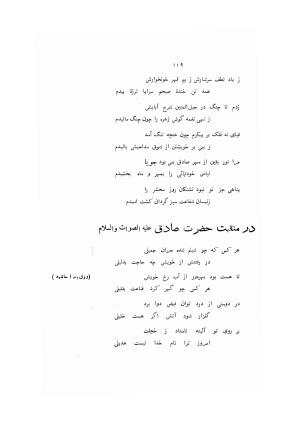 ۱۱۹
ز یاد لطف سرشارش ز بیم قهر خونخوارش
همه تن خندهٔ صبحم سراپا لرزهٔ بیدم
زدم تا چنگ در حبل‌المتین شرع آبایش
ز نبی نغمه گوش زهره را چون چنگ مالیدم
قبای نه فلک بر پیکرم چون غنچه تنگ آمد
ز بس بر خویشتن از شوق مداحیش بالیدم
مرا نور یقین از مهر صادق بس بود جویا
لباس خودنمائی را بمهر و ماه بخشیدم
پناهی جز تو نبود تشنگان روز محشر را
ز نیسان شفاعت سبز گردان کشت امیدم
در منقبت حضرت صادق علیه الصلوة والسلام
هر کس که چو شبنم شده حیران جمیلی
در رفتنش از خویش چه حاجت بدلیلی
تا هست بود بهره‌ور از آب رخ خویش
هر کس چو گهر کرد قناعت بقلیلی
در دوستی از درد توان فیض دوا برد
گلزار شود آتش اگر هست خلیلی
بر روی تو آئینه نامداد ز خجلت
امروز ترا نام خدا نیست عدیلی